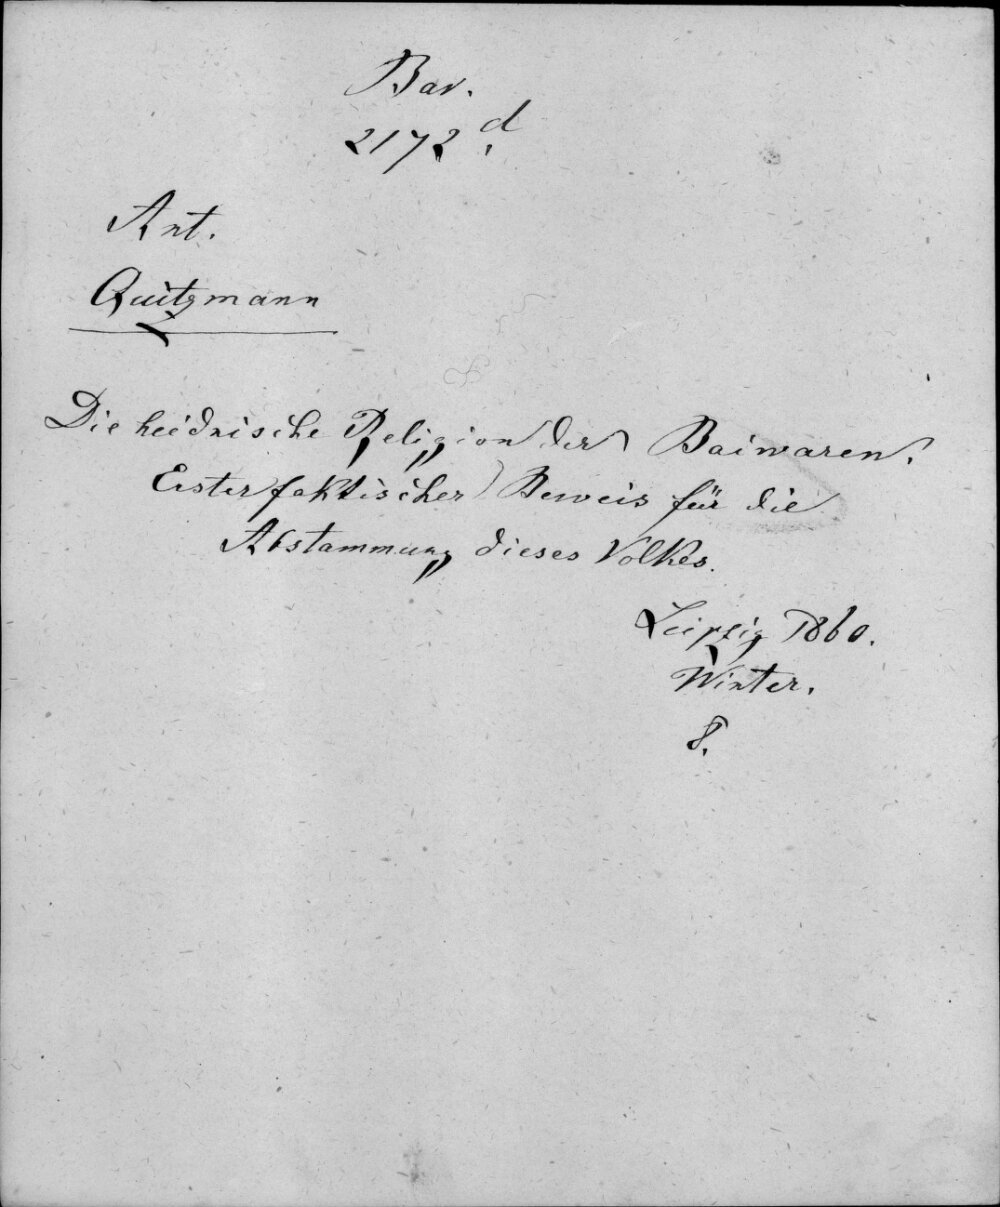 Bav.
2172 d.
Ant.
Quitzmann
Die heidnische Religion der Baiwaren.
Erster faktischer Beweis für die
Abstammung dieses Volkes.
Leipzig 1860.
Winter.
8.